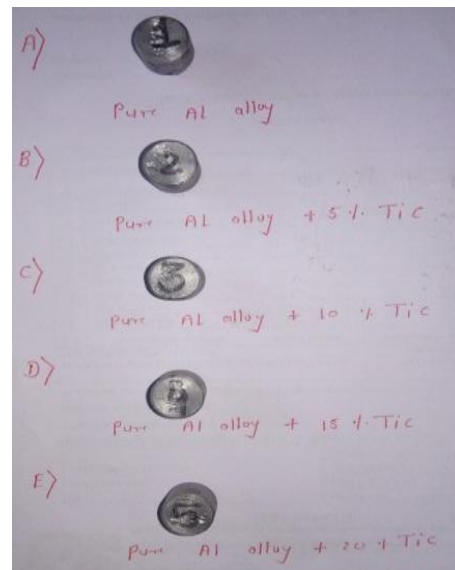 A)
1
Pure Al alloy
B)
2
Pure Al alloy + 5 % TiC
C)
3
Pure Al alloy + 10 % TiC
D)
Pure Al alloy + 15 % TiC
E)
Pure Al alloy + 20 % TiC